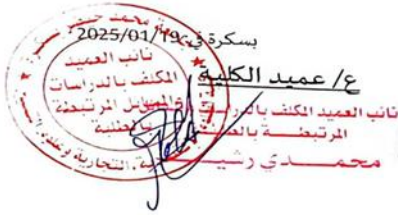 بسكرة في: 2025/01/19
ع/ عميد الكلية
نائب العميد المكلف بالدراسات والمسائل
المرتبطة بالطلبة
محمدي رشيد
نائب العميد
المكلف بالدراسات
والمسائل المرتبطة
بالطلبة
محمد خيضر بسكرة
التجارية وعلوم